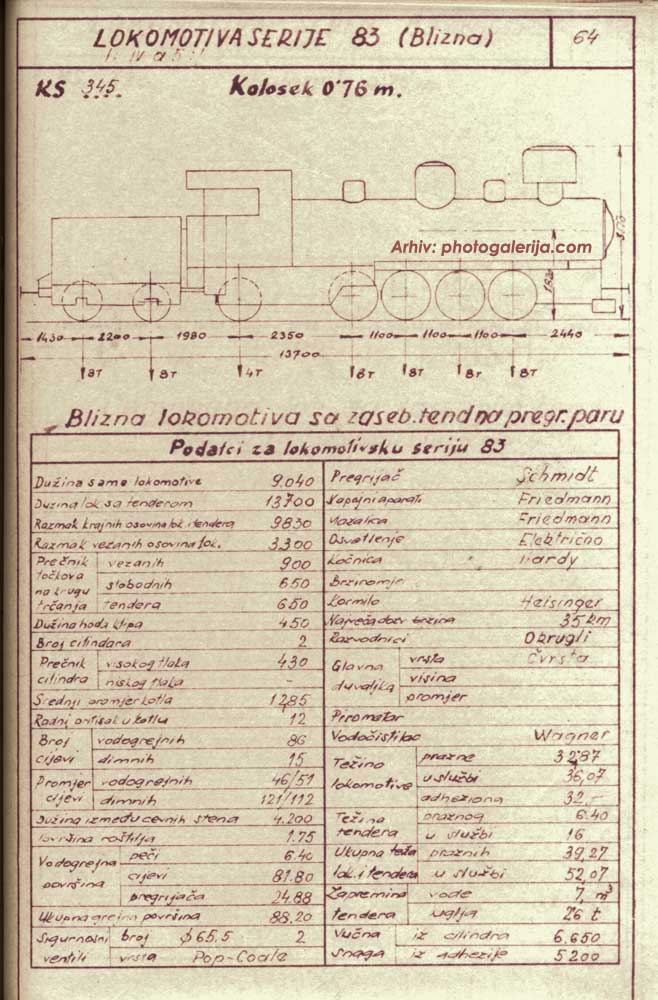 LOKOMOTIVA SERIJE 83 (Blizna) 64
KS 345. Kolosek 0'76 m.
Arhiv: photogalerija.com
1430 2200 1980 2350 1100 1100 1100 2440
13700
8T 8T 4T 8T 8T 8T 8T
Blizna lokomotiva sa zaseb. tend na pregr. paru
Podatci za lokomotivsku seriju 83
Dužina same lokomotive 9.040
Dužina lok sa tenderom 13700
Razmak krajnih osovina lok. i tendera 9830
Razmak vezanih osovina lok. 3.300
Prečnik točkova na krugu trčanja vezanih 900
slobodnih 650
tendera 650
Dužina hoda klipa 450
Broj cilindara 2
Prečnik cilindra visokog tlaka 430
niskog tlaka -
Srednji promjer kotla 1285
Radni pritisak u kotlu 12
Broj cijevi vodogrejnih 86
dimnih 15
Promjer cijevi vodogrejnih 46/51
dimnih 121/112
Dužina između cevnih stena 4.200
Površina roštilja 1.75
Vodogrejna površina peći 6.40
cijevi 81.80
pregrijača 24.88
Ukupna grejna površina 88.20
Sigurnosni ventili broj ϕ 65.5 2
vrsta Pop-Coale
Pregrijač Schmidt
Napojni aparati Friedmann
Mazalica Friedmann
Osvetlenje Električno
Kočnica Hardy
Brzinomjer
Kormilo Heisinger
Najveća dozv brzina 35 km
Razvodnici Okrugli
Glavna duvaljka vrsta Čvrsta
visina
promjer
Pirometar
Vodočistilac Wagner
Težina lokomotive prazne 32,87
u službi 36,07
adheziona 32,-
Težina tendera praznog 6.40
u službi 16
Ukupna teža lok. i tendera praznih 39,27
u službi 52,07
Zapremina tendera vode 7, m³
uglja 26 t
Vučna snaga iz cilindra 6.650
iz adhezije 5200